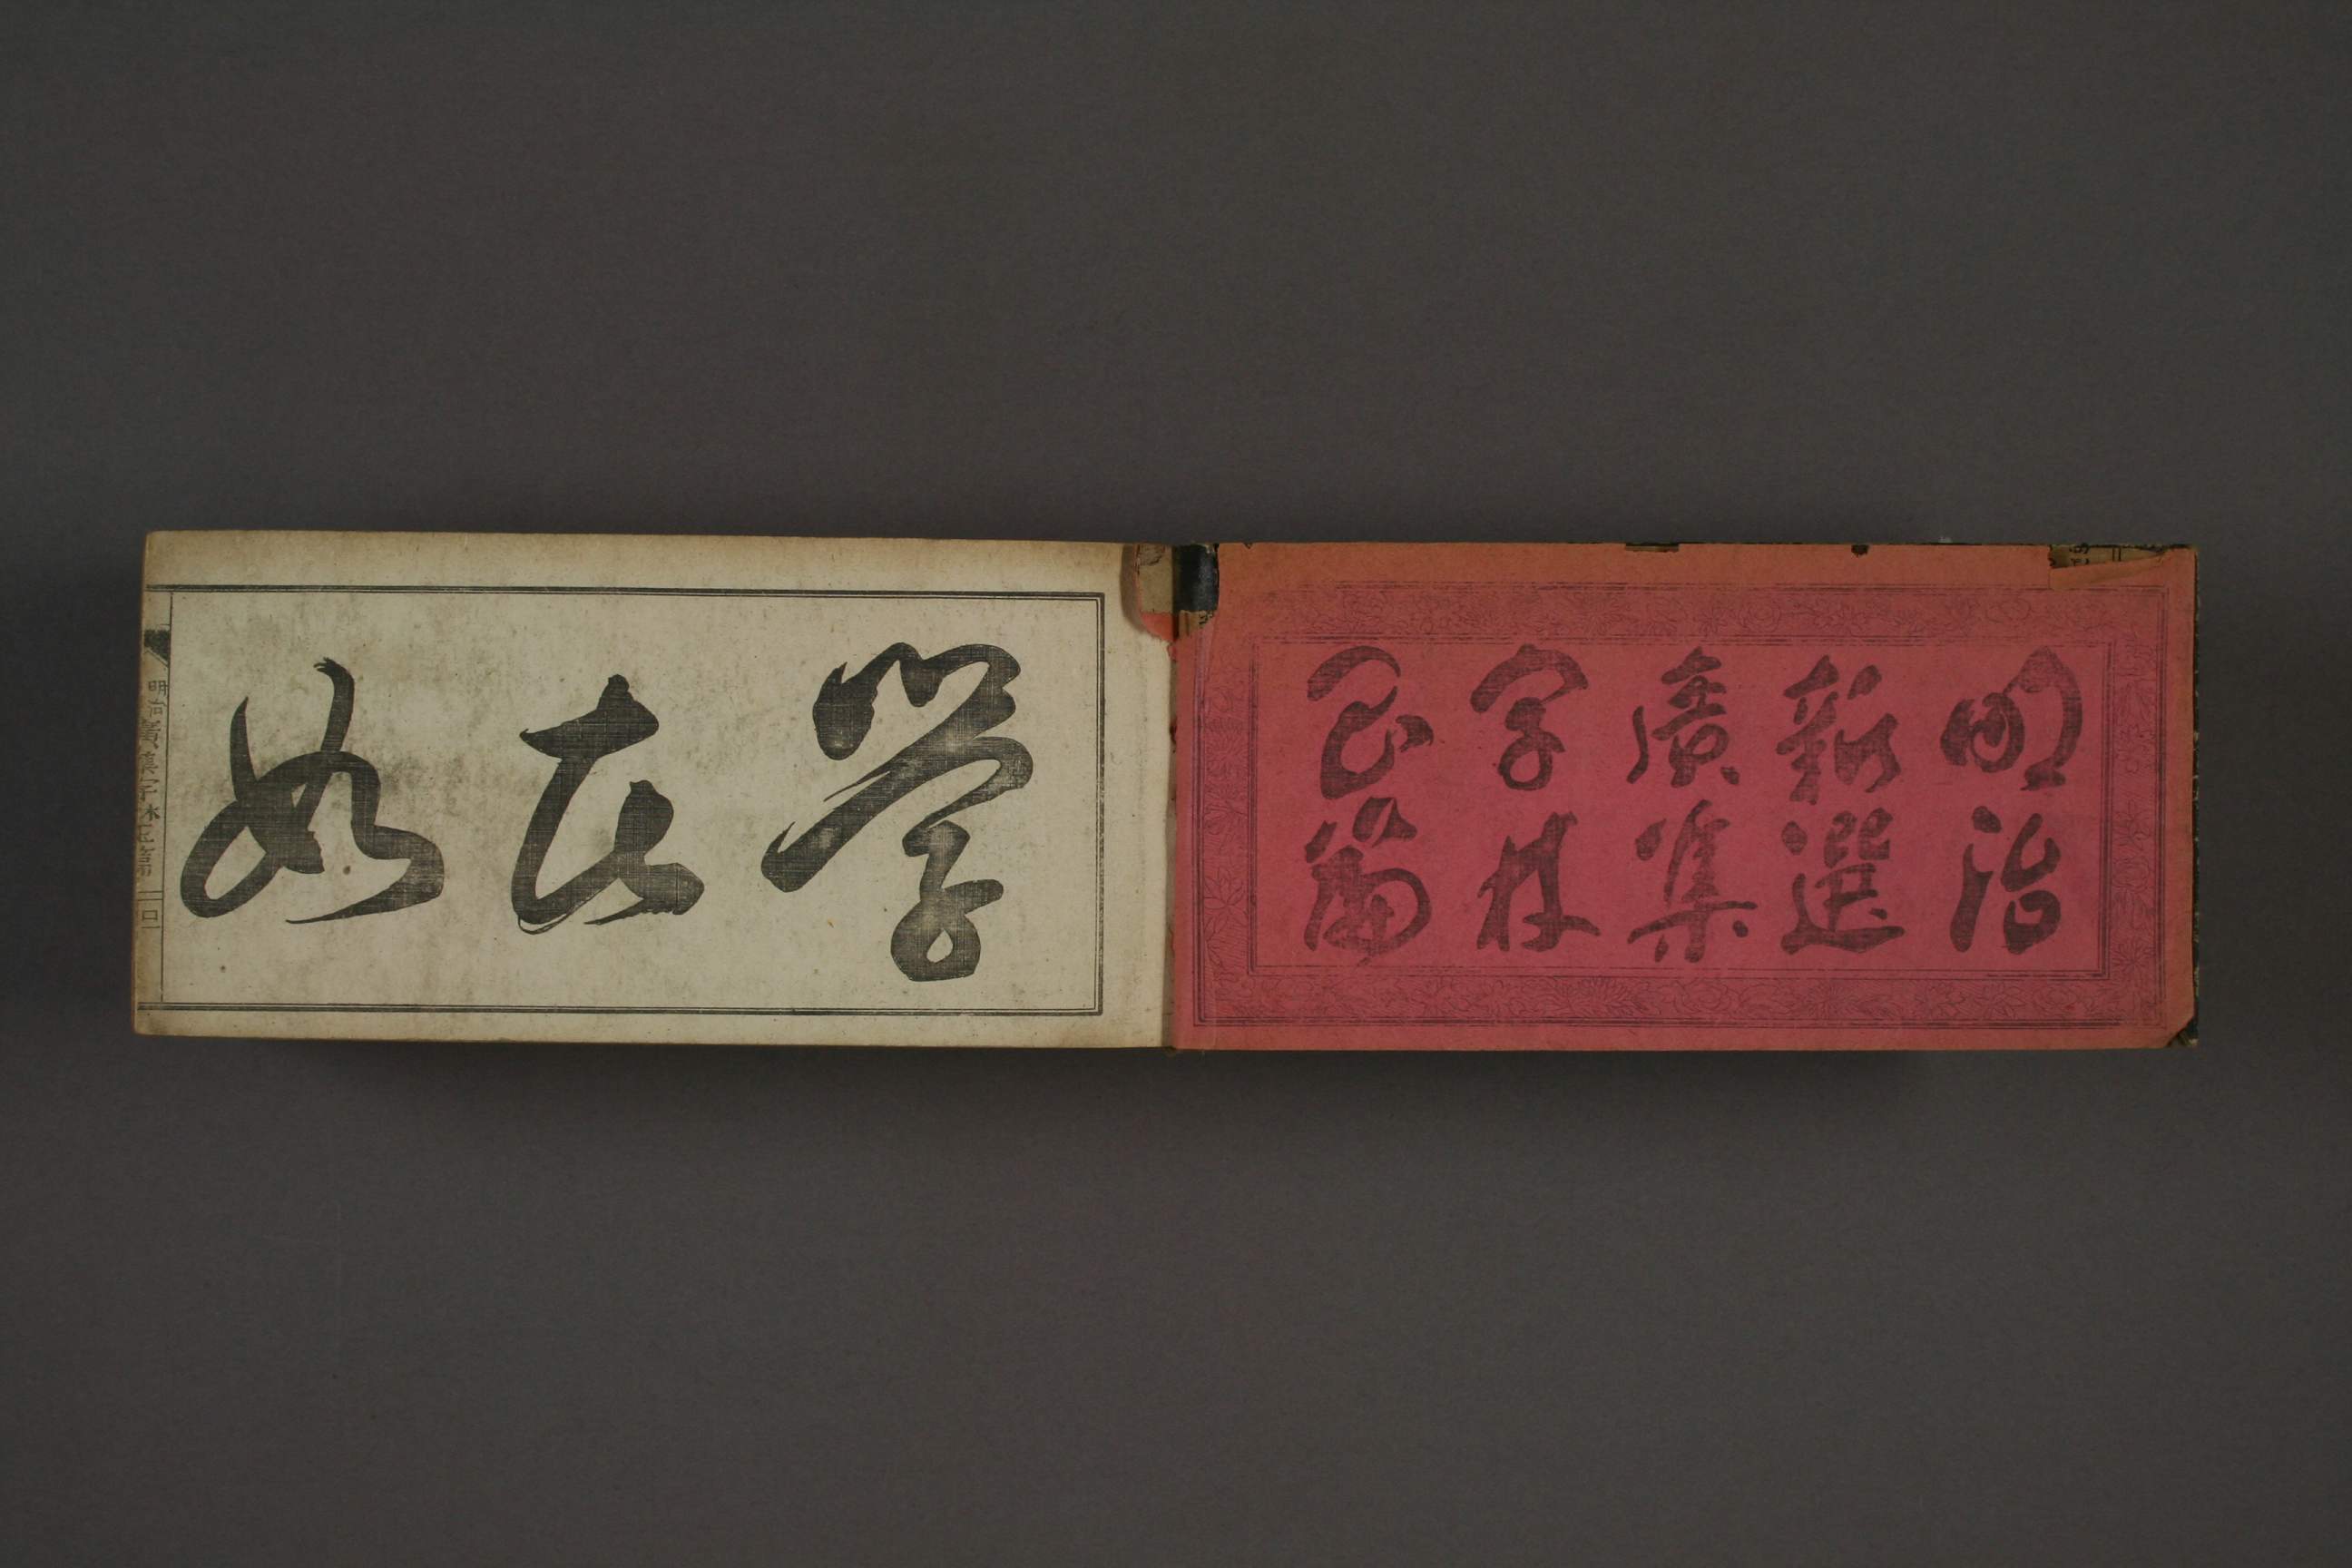 明治
新選
廣集
字林
玉篇
學
在
如
明治廣集字林玉篇